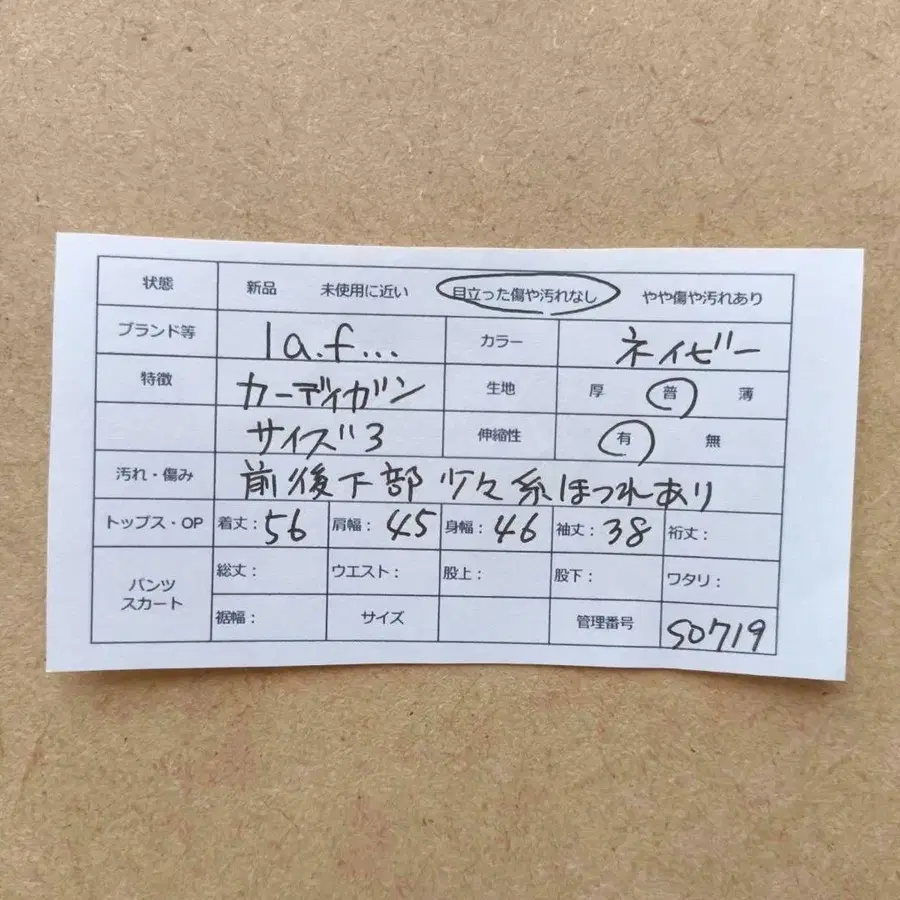 状態 新品 未使用に近い 目立った傷や汚れなし やや傷や汚れあり
ブランド等 la.f... カラー ネイビー
特徴 カーディガン 生地 厚 普 薄
サイズ3 伸縮性 有 無
汚れ・傷み 前後下部少々糸ほつれあり
トップス・OP 着丈: 56 肩幅: 45 身幅: 46 袖丈: 38 裄丈:
パンツ スカート 総丈: ウエスト: 股上: 股下: ワタリ:
裾幅: サイズ 管理番号 S0719